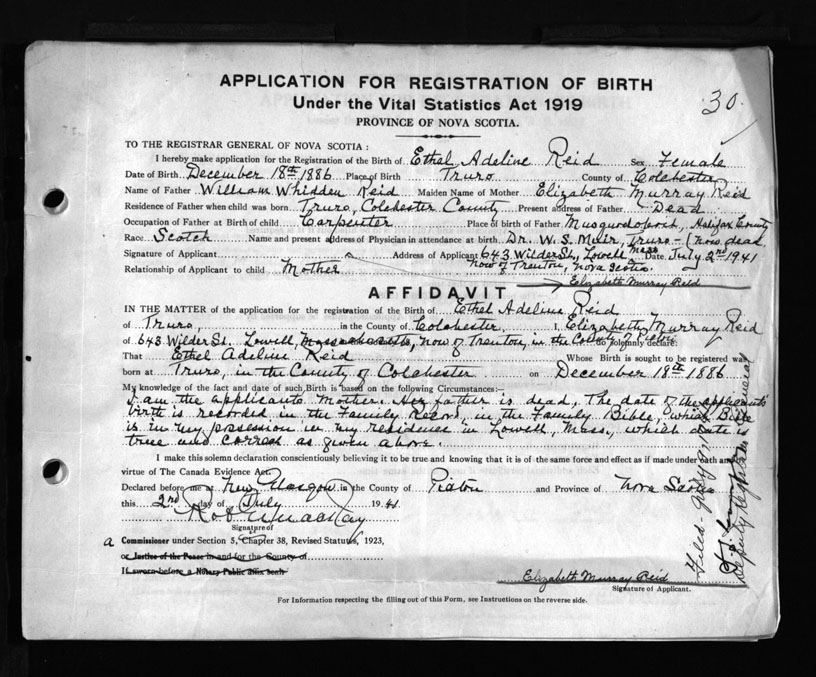 APPLICATION FOR REGISTRATION OF BIRTH
Under the Vital Statistics Act 1919
PROVINCE OF NOVA SCOTIA.
30.
TO THE REGISTRAR GENERAL OF NOVA SCOTIA:
I hereby make application for the Registration of the Birth of Ethel Adeline Reid Sex Female
Date of Birth December 18th 1886 Place of Birth Truro County of Colchester
Name of Father William Whidden Reid Maiden Name of Mother Elizabeth Murray Reid
Residence of Father when child was born Truro, Colchester County Present address of Father Dead
Occupation of Father at Birth of child Carpenter Place of birth of Father Musquodoboit, Halifax County
Race Scotch Name and present address of Physician in attendance at birth Dr. W. S. Muir, Truro - (now dead
Signature of Applicant Address of Applicant 643 Wilder St, Lowell Mass Date July 2nd 1941
Relationship of Applicant to child Mother now of Trenton, Nova Scotia.
Elizabeth Murray Reid
AFFIDAVIT
IN THE MATTER of the application for the registration of the Birth of Ethel Adeline Reid
of Truro, in the County of Colchester. I, Elizabeth Murray Reid
of 643 Wilder St. Lowell, Massachusetts, now of Trenton, in the Co. of Pictou do solemnly declare:
That Ethel Adeline Reid Whose Birth is sought to be registered was
born at Truro, in the County of Colchester on December 18th 1886
My knowledge of the fact and date of such Birth is based on the following Circumstances:—
I am the applicants Mother. Her father is dead. The date of the applicant's
birth is recorded in the Family Record, in the Family Bible, which Bible
is in my possession in my residence in Lowell, Mass, which date is
true and correct as given above.
I make this solemn declaration conscientiously believing it to be true and knowing that it is of the same force and effect as if made under oath and
virtue of The Canada Evidence Act.
Declared before me at New Glasgow in the County of Pictou and Province of Nova Scotia
this 2nd day of July 1941
Signature of
a Commissioner under Section 5, Chapter 38, Revised Statutes, 1923,
or Justice of the Peace in and for the County of
If sworn before a Notary Public affix Seal
Elizabeth Murray Reid
Signature of Applicant.
For Information respecting the filling out of this Form, see Instructions on the reverse side.
Deputy Registrar General